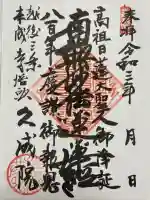 奉拝 令和三年 月 日
高祖日蓮大聖人御降誕
南無妙法蓮華経
八百年 慶讃御報恩
越後三条
本成寺塔頭 久成院